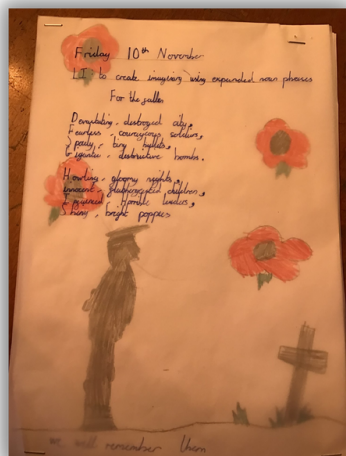 Friday 10th November
LI to create imagery using expanded noun phrases
For the fallen
Devastating, destroyed city,
Fearless, courageous soldiers,
tiny bullets,
Gigantic, destructive bombs.
Howling, gloomy nights,
innocent, children,
horrific leaders,
Shiny, bright poppies
we will remember them